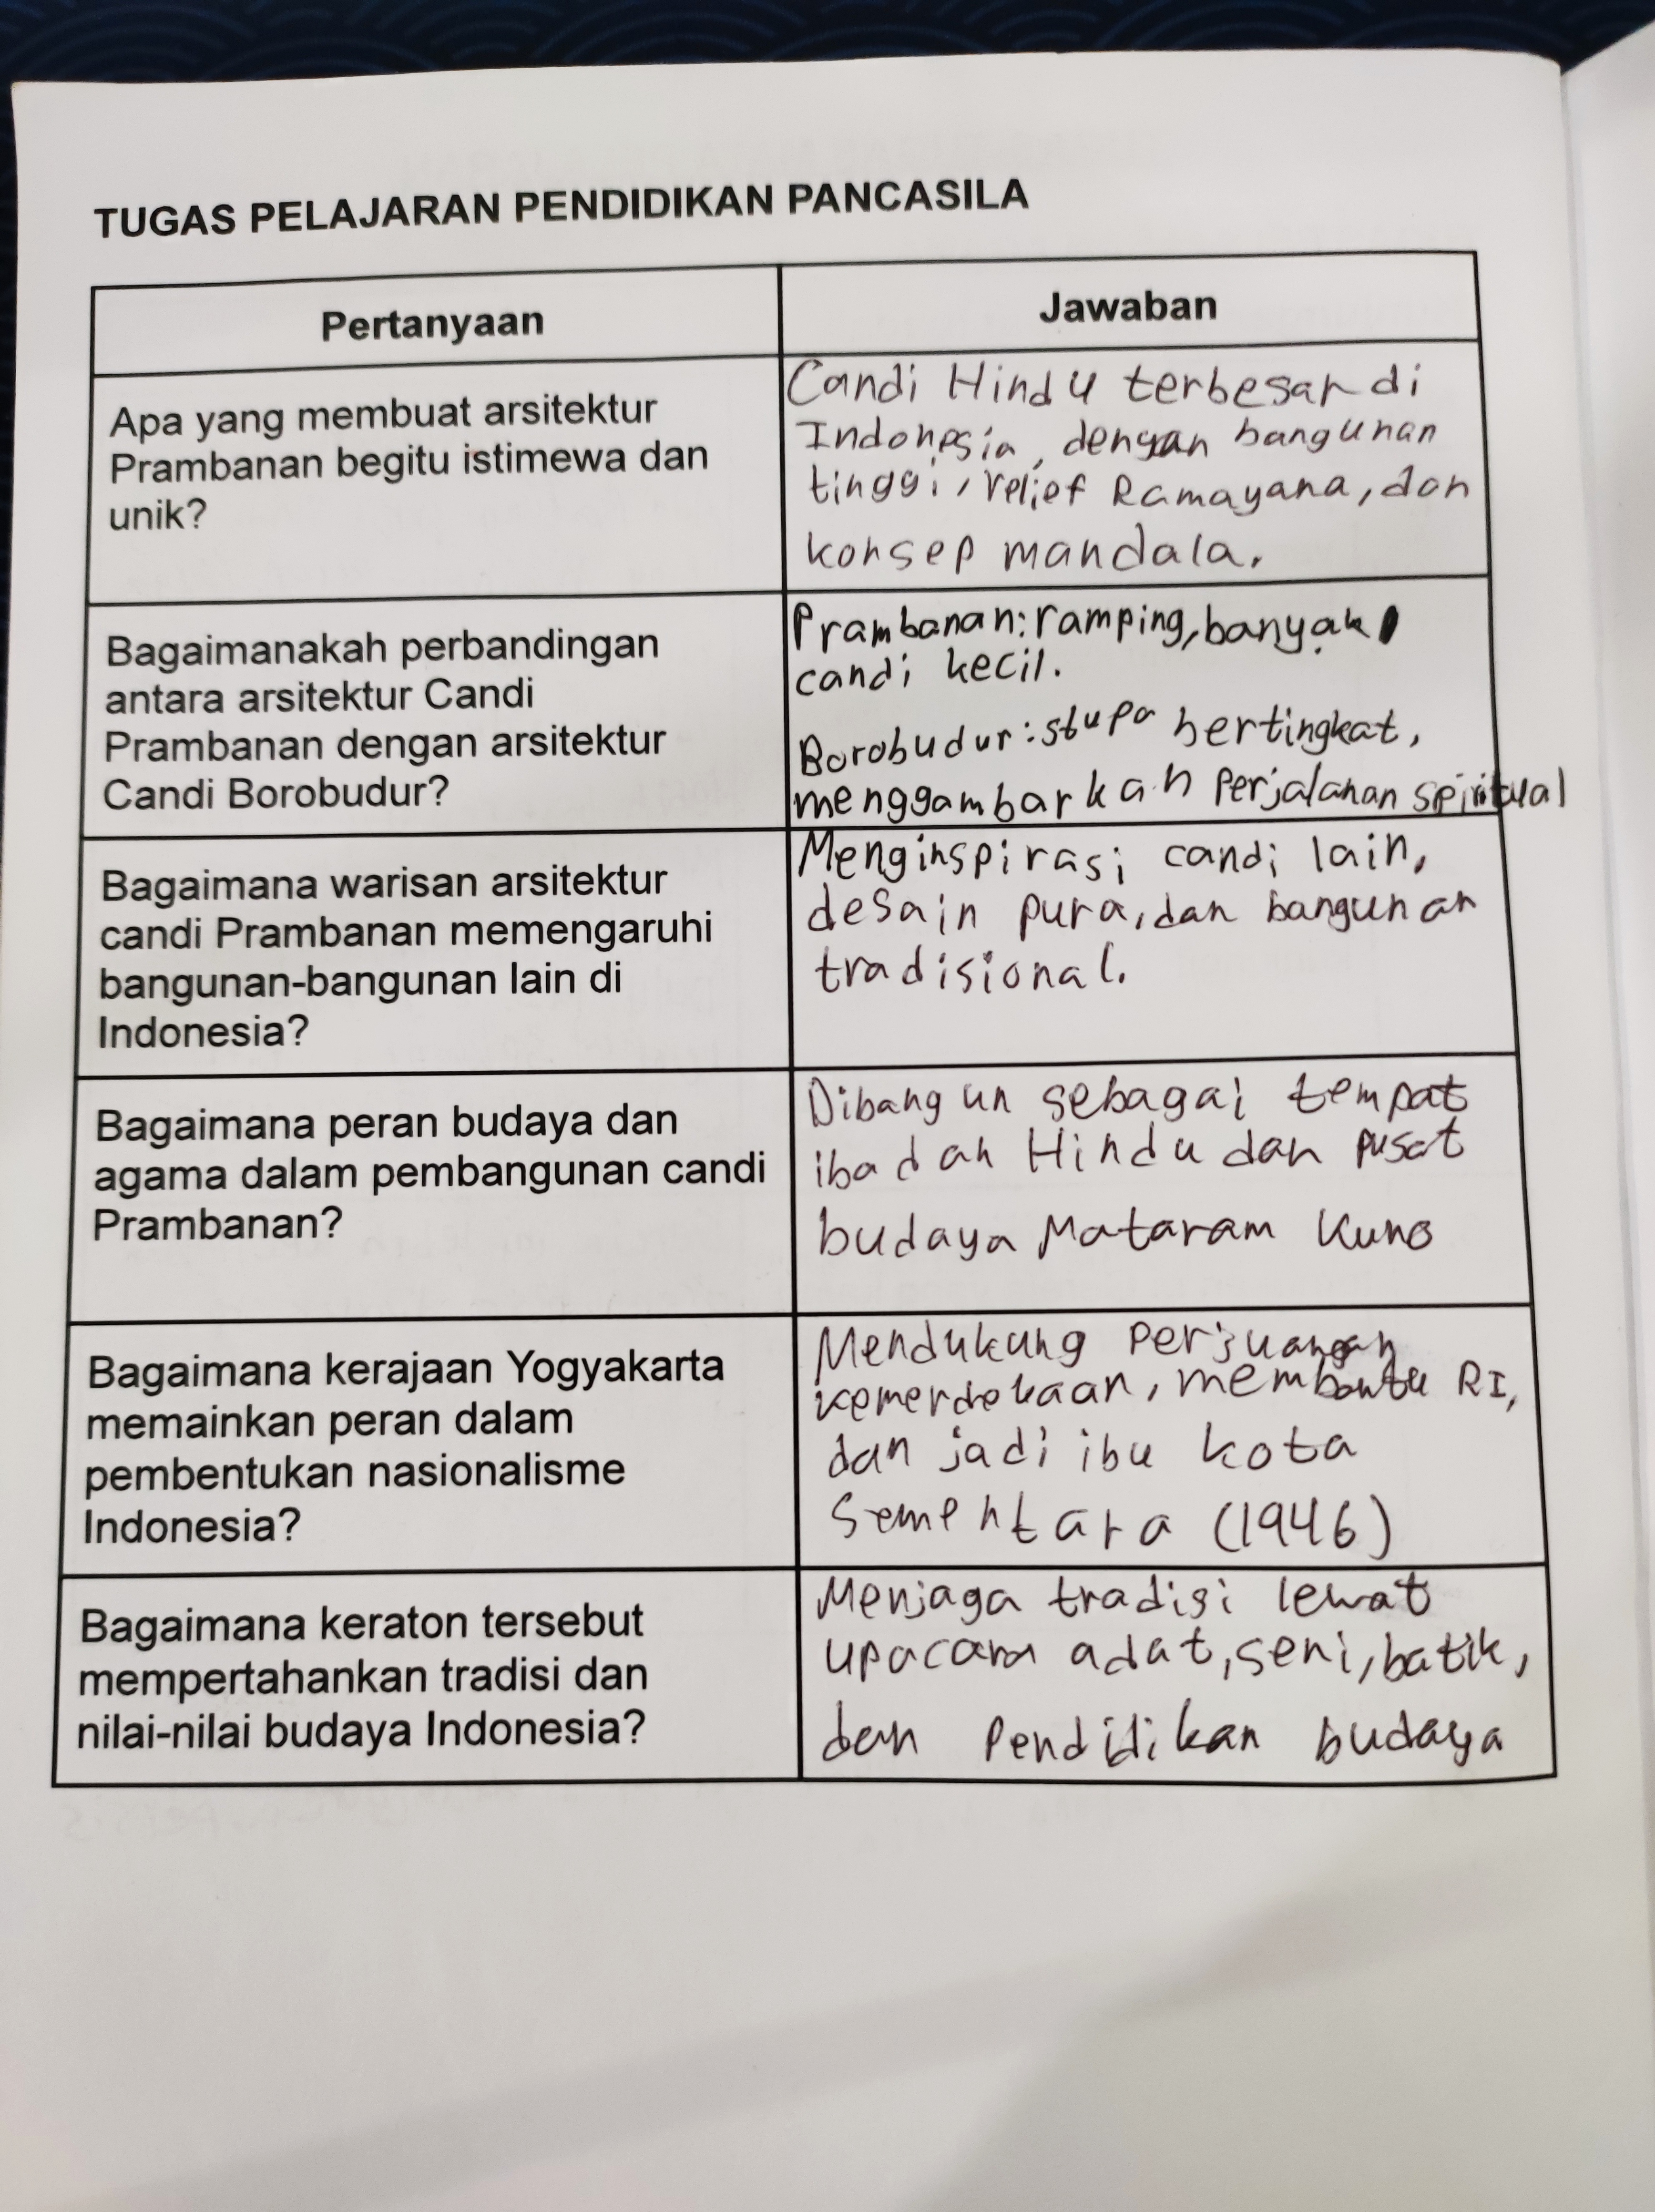 TUGAS PELAJARAN PENDIDIKAN PANCASILA
Pertanyaan
Jawaban
Apa yang membuat arsitektur
Prambanan begitu istimewa dan
unik?
Candi Hindu terbesar di
Indonesia, dengan bangunan
tinggi, relief Ramayana, dan
konsep mandala.
Bagaimanakah perbandingan
antara arsitektur Candi
Prambanan dengan arsitektur
Candi Borobudur?
Prambanan: ramping, banyak
candi kecil.
Borobudur: stupa bertingkat,
menggambarkan perjalanan spiritual
Bagaimana warisan arsitektur
candi Prambanan memengaruhi
bangunan-bangunan lain di
Indonesia?
Menginspirasi candi lain,
desain pura, dan bangunan
tradisional.
Bagaimana peran budaya dan
agama dalam pembangunan candi
Prambanan?
Dibangun sebagai tempat
ibadah Hindu dan pusat
budaya Mataram Kuno
Bagaimana kerajaan Yogyakarta
memainkan peran dalam
pembentukan nasionalisme
Indonesia?
Mendukung perjuangan
kemerdekaan, membantu RI,
dan jadi ibu kota
Sementara (1946)
Bagaimana keraton tersebut
mempertahankan tradisi dan
nilai-nilai budaya Indonesia?
Menjaga tradisi lewat
upacara adat, seni, batik,
dan Pendidikan budaya